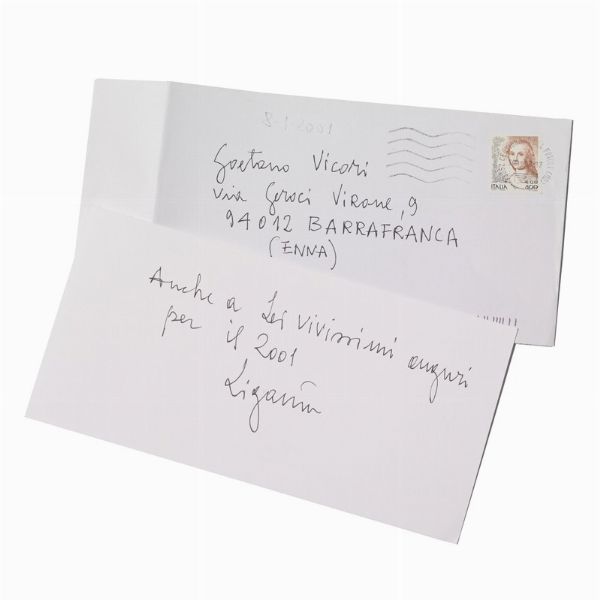 Gaetano Vicari
Via Geraci Virone, 9
94012 BARRAFRANCA
(ENNA)
ITALIA
400
Anche a Lei vivissimi auguri
per il 2001